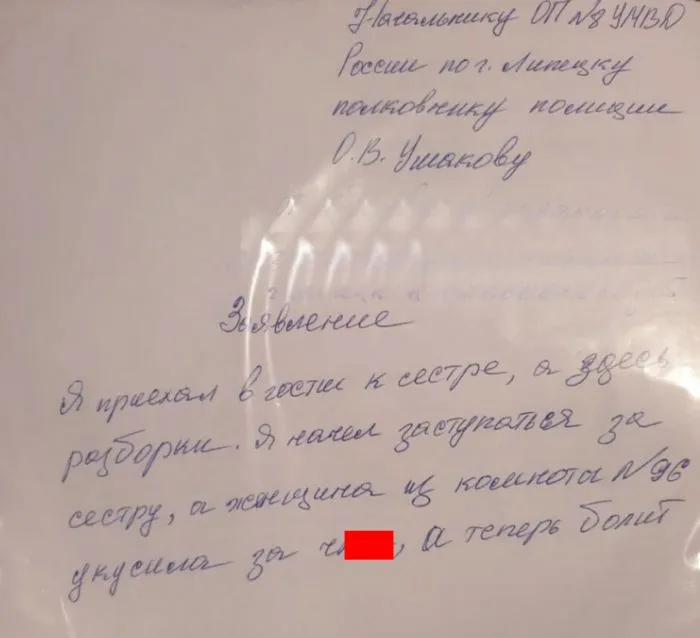 Начальнику ОП №8 УМВД
России по г. Липецку
полковнику полиции
О.В. Ушакову
Заявление
Я приехал в гости к сестре, а здесь
разборки. Я начел заступаться за
сестру, а женщина из комнота №96
укусила за ч , а теперь болит